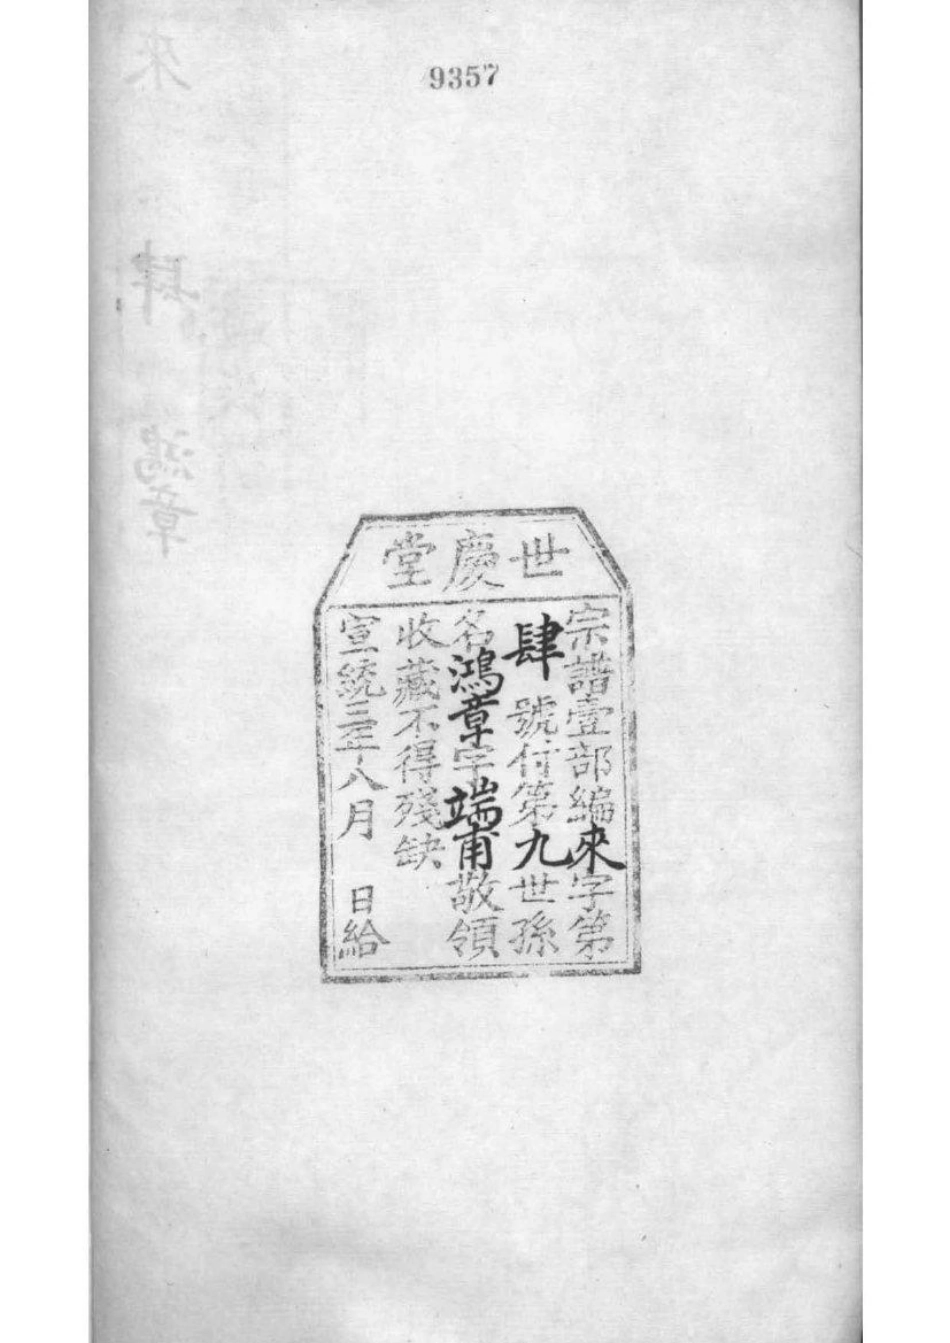 9357
世慶堂
宗譜壹部編來字第
肆號付第九世孫
名鴻章字端甫敬領
收藏不得殘缺
宣統三年八月 日給
來
肆
鴻章